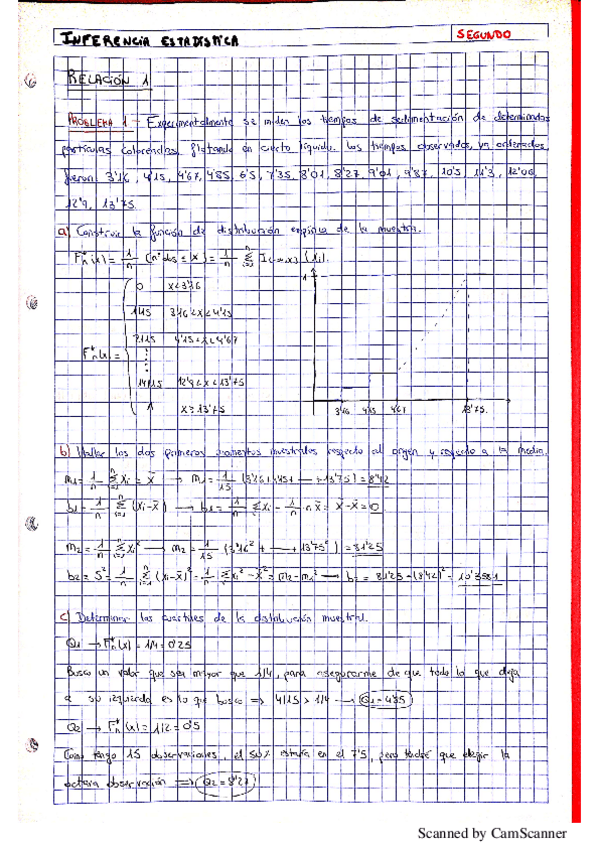 INFERENCIA ESTADÍSTICA
SEGUNDO
RELACIÓN 1
PROBLEMA 1 - Experimentalmente se miden los tiempos de sedimentación de determinadas
partículas coloreadas flotando en cierto líquido. Los tiempos observados, ya ordenados,
fueron: 3'16, 4'15, 4'67, 4'85, 6'5, 7'35, 8'01, 8'27, 9'01, 9'87, 10'5, 11'3, 12'06,
12'9, 13'75.
a) Construir la función de distribución empírica de la muestra.
F*n(x) = 1/n (nº obs ≤ x) = 1/n Σ I(-∞,x] (xi).
0 x<3'16
1/15 3'16<x<4'15
2/15 4'15<x<4'67
F*n(x) =
14/15 12'9<x<13'75
1 x≥13'75
1
3'16 4'15 4'67 13'75.
b) Hallar los dos primeros momentos muestrales respecto al origen y respecto a la media.
m1 = 1/n Σ xi = x̄ → m1 = 1/15 (3'16+ + 13'75) = 8'42
b1 = 1/n Σ (xi - x̄) → b1 = 1/n Σ xi - 1/n n x̄ = x̄ - x̄ = 0
m2 = 1/n Σ xi² → m2 = 1/15 (3'16² + + 13'75²) = 81'25
b2 = S² = 1/n Σ (xi - x̄)² = 1/n Σ xi² - x̄² = m2 - m1² → b2 = 81'25 - (8'42)² = 10'3581
c) Determinar los cuartiles de la distribución muestral.
Q1 → F*n(x) = 1/4 = 0'25
Busco un valor que sea mayor que 1/4, para asegurarme de que todo lo que deja
a su izquierda es lo que busco ⇒ 4/15 > 1/4 → Q1 = 4'85
Q2 → F*n(x) = 1/2 = 0'5
Como tengo 15 observaciones, el 50% estaría en el 7'5, pero tendré que elegir la
octava observación ⇒ Q2 = 8'27
Scanned by CamScanner